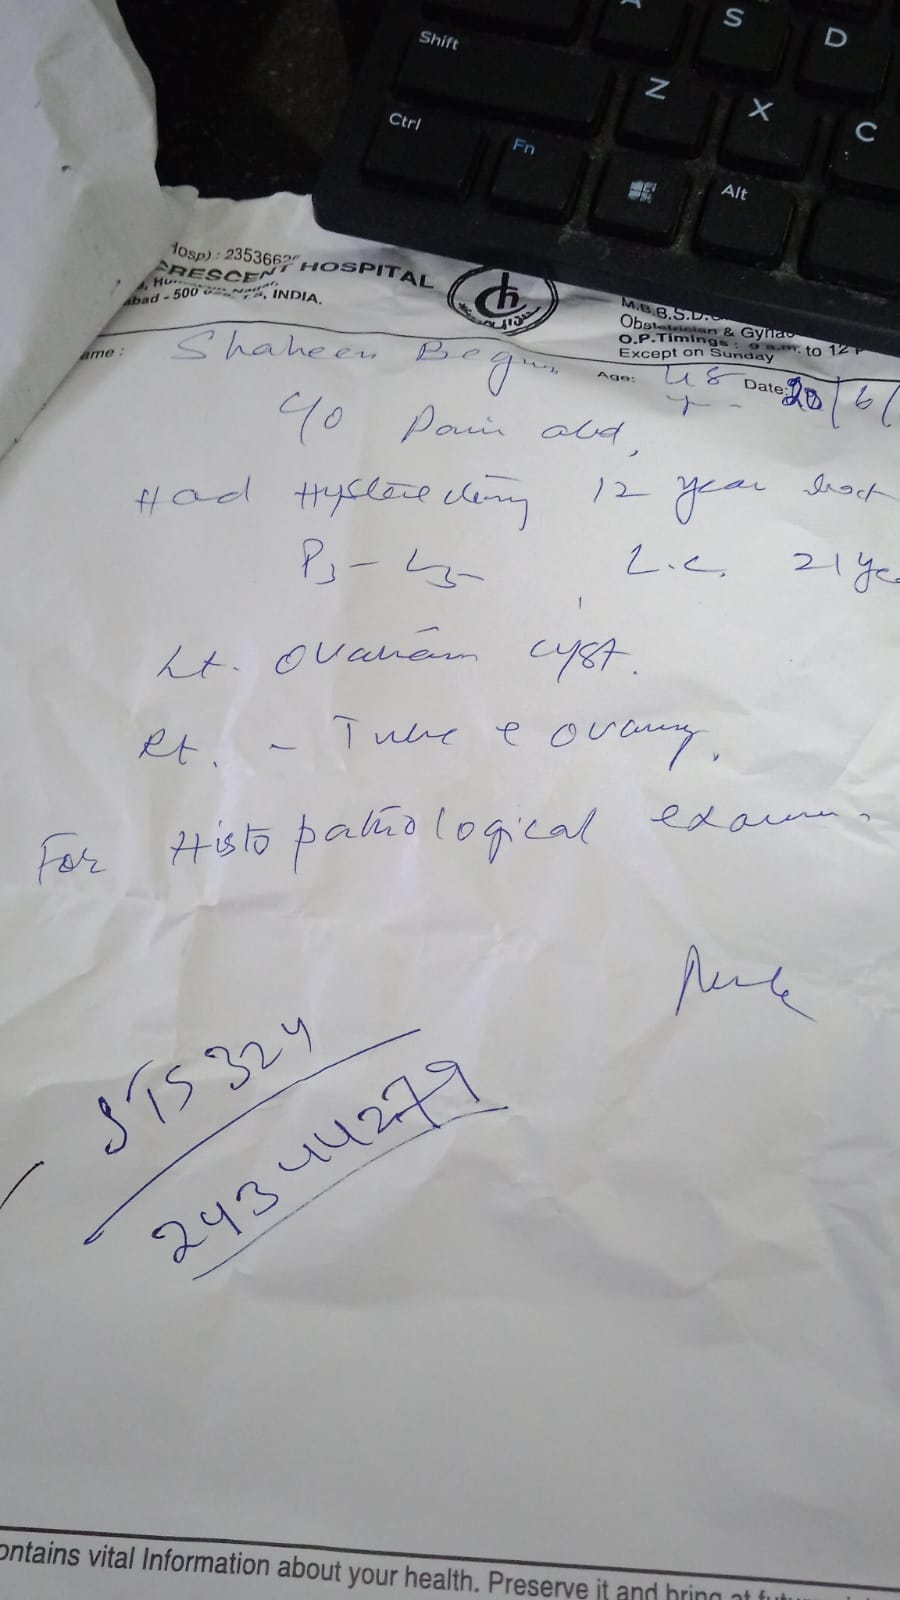 A S D
Shift Z X C
Ctrl Fn Alt
Hosp) : 2353662
CRESCENT HOSPITAL
bad - 500 INDIA.
M.B.B.S.D.
Obstetrician & Gynae
O.P.Timings : 9 a.m. to 12
Except on Sunday
ame : Shaheen Begum Age: 48 Date: 20/6/
y
C/o Pain abd,
Had Hysterectomy 12 year back
P3 - L3 - L.C. 21 ye
Lt. Ovarian cyst.
Rt. - Tube & ovary.
For Histopathological exam.
ST5324
24344279
ontains vital Information about your health. Preserve it and bring at fut